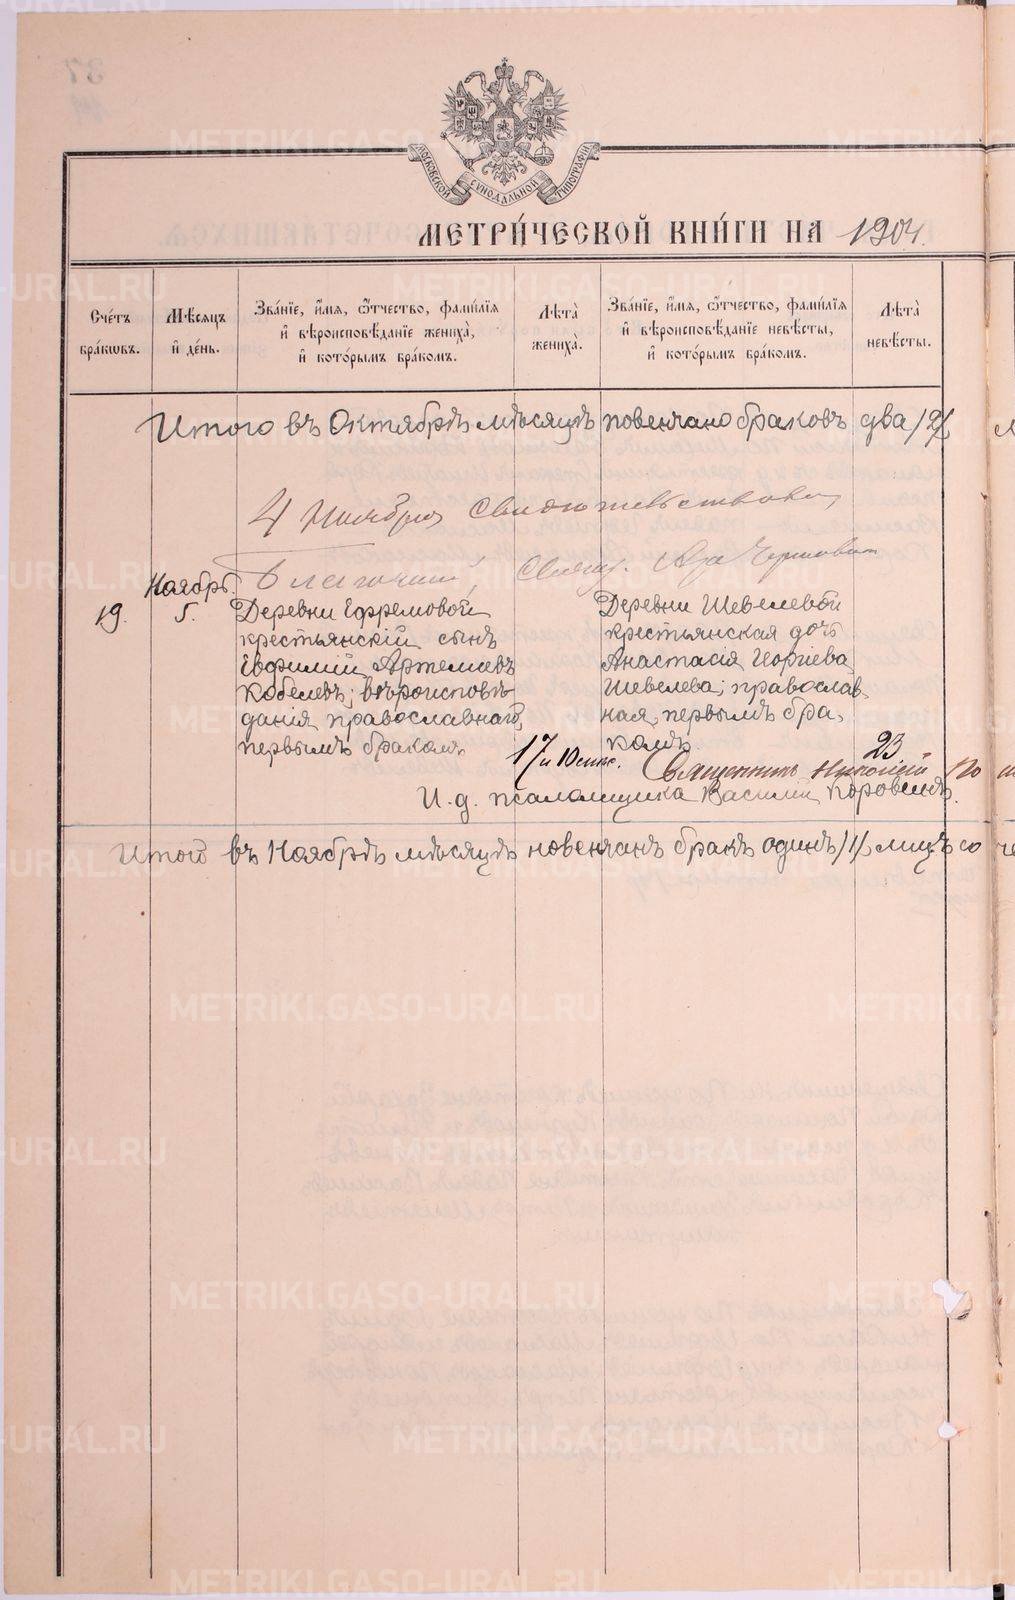 МОСКОВСКОЙ СѴНОДАЛЬНОЙ ТИПОГРАФІИ
МЕТРИ́ЧЕСКОЙ КНИ́ГИ НА 1904.
Сче́тъ бра́кѡвъ.
Мѣ́сѧцъ и҆ де́нь.
Зва́нїе, и҆́мѧ, ѻ҆́тчество, фами́лїѧ
и҆ вѣроисповѣ́данїе жениха̀,
и҆ кото́рымъ бра́комъ.
Лѣта̀ жениха̀.
Зва́нїе, и҆́мѧ, ѻ҆́тчество, фами́лїѧ
и҆ вѣроисповѣ́данїе невѣ́сты,
и҆ кото́рымъ бра́комъ.
Лѣта̀ невѣ́сты.
Итого въ Октябрѣ мѣсяцѣ повенчано браковъ два /2/
4 Ноября Свидѣтельствовал
Благочинный, Свящ.
Ноябрь.
19. 5.
Деревни Ефремовой
крестьянскій сынъ
Евфимій Артемьевъ
Кобелевъ; вѣроисповѣ-
данія православнаго,
первымъ бракомъ
17 и 10 мѣс.
Деревни Шевелевой
крестьянская дочь
Анастасія Георгіева
Шевелева; православ-
ная, первымъ бра-
комъ
23
Священникъ Николай По
И. д. псаломщика Василій Коровинъ.
Итого въ Ноябрѣ мѣсяцѣ повенчанъ бракъ одинъ /1/ лицъ со че
METRIKI.GASO-URAL.RU